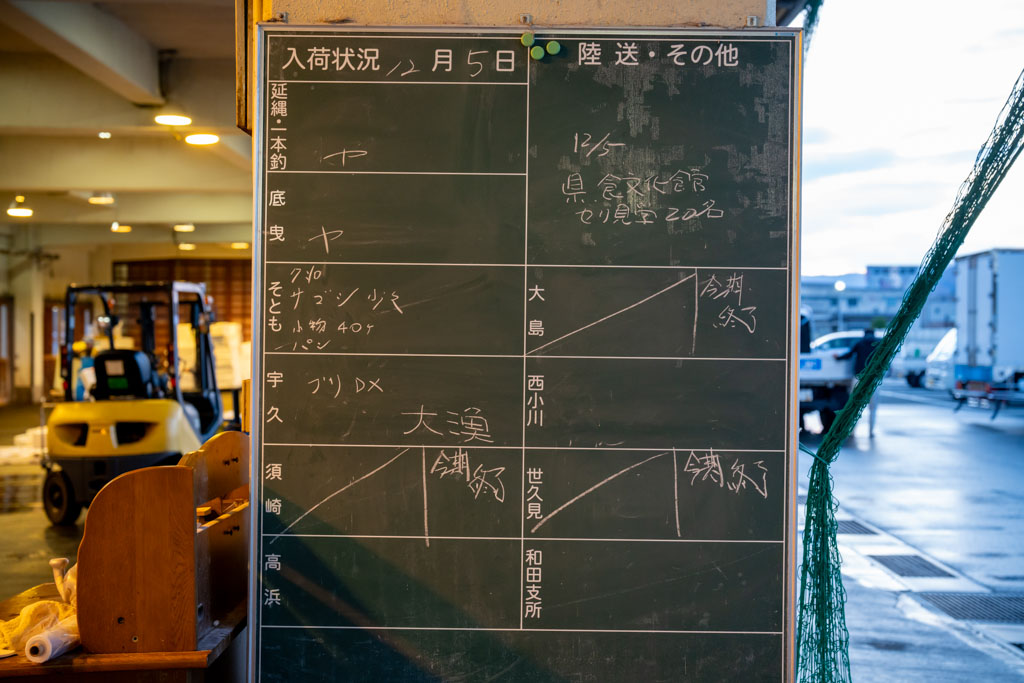 入荷状況 12月5日
延縄・一本釣
ヤ
底曳
ヤ
そとも
サゴシ 少々
小物 40ヶ
パン
宇久
ブリ DX
大漁
須崎
今期
終了
高浜
陸送・その他
12/5
県 食文化館
セリ見学 22名
大島
今期
終了
西小川
世久見
今期終了
和田支所